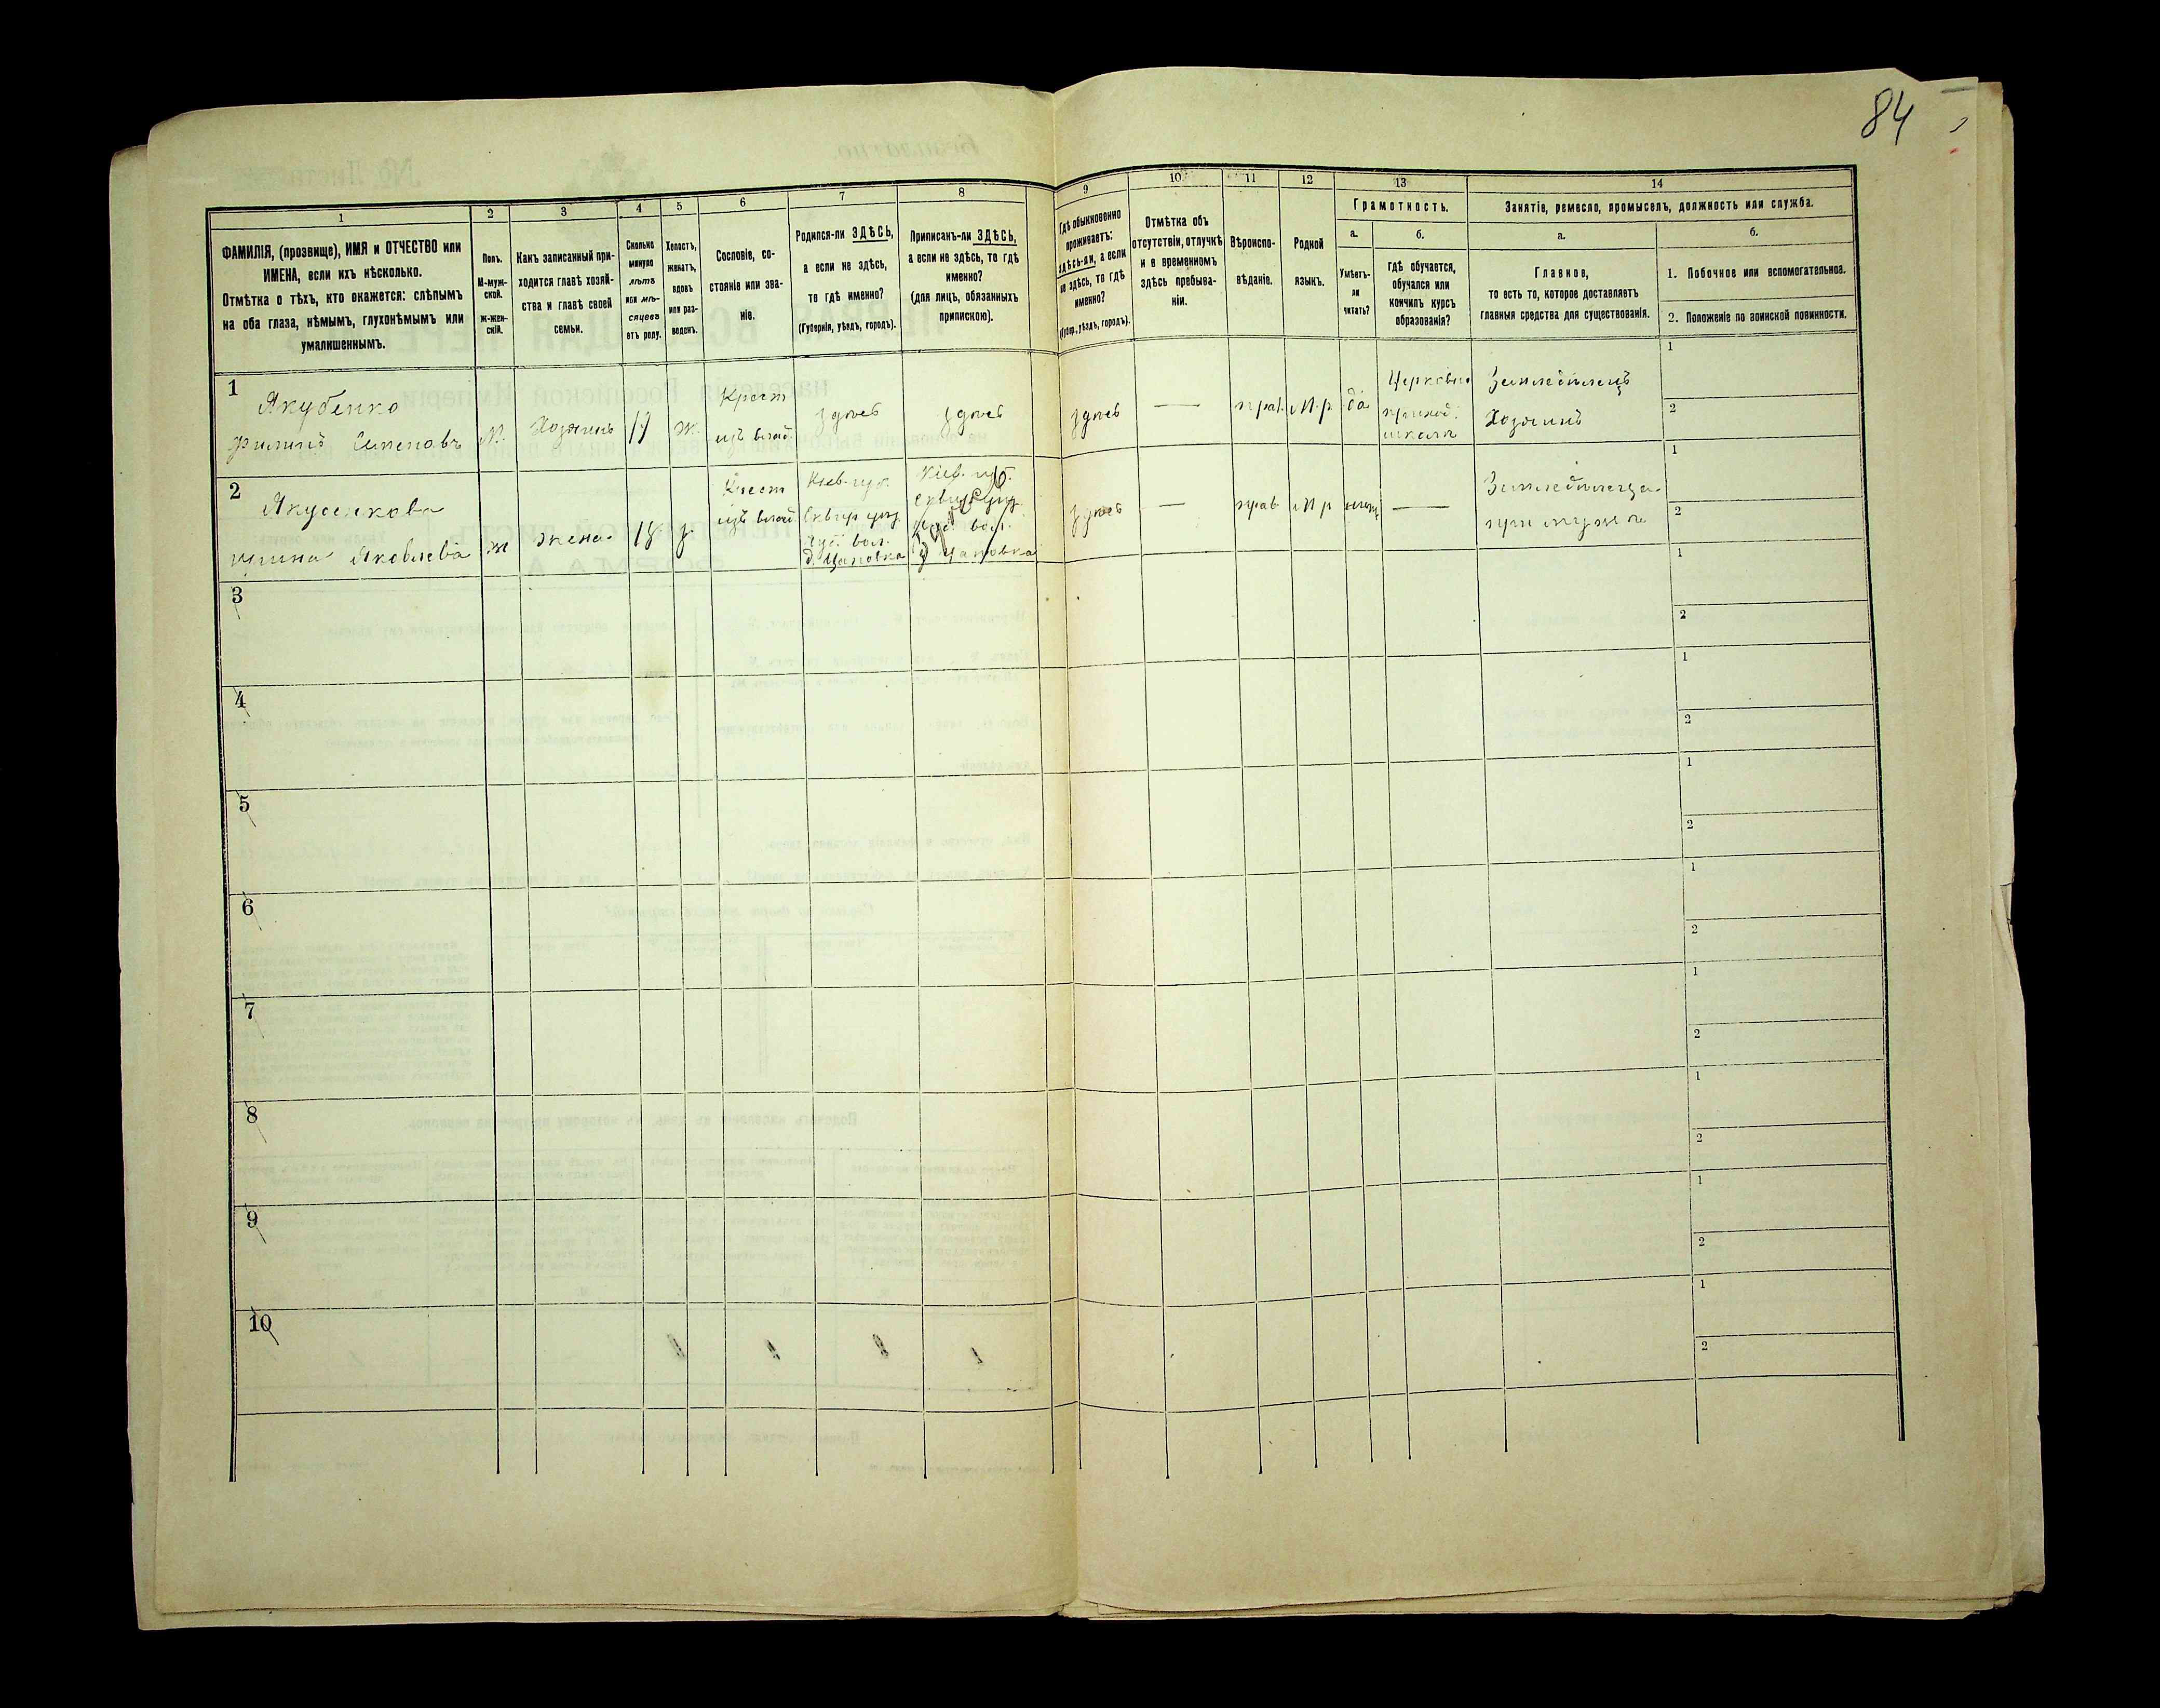 84
1
2
3
4
5
6
7
8
9
10
11
12
13
14
ФАМИЛІЯ, (прозвище), ИМЯ и ОТЧЕСТВО или
ИМЕНА, если ихъ нѣсколько.
Отмѣтка о тѣхъ, кто окажется: слѣпымъ
на оба глаза, нѣмымъ, глухонѣмымъ или
умалишеннымъ.
Полъ.
М-муж-
ской.
ж-жен-
скій.
Какъ записанный при-
ходится главѣ хозяй-
ства и главѣ своей
семьи.
Сколько
минуло
лѣтъ
или мѣ-
сяцевъ
отъ роду.
Холостъ,
женатъ,
вдовъ
или раз-
веденъ.
Сословіе, со-
стояніе или зва-
ніе.
Родился-ли ЗДѢСЬ,
а если не здѣсь,
то гдѣ именно?
(Губернія, уѣздъ, городъ).
Приписанъ-ли ЗДѢСЬ,
а если не здѣсь, то гдѣ
именно?
(для лицъ, обязанныхъ
припискою).
Гдѣ обыкновенно
проживаетъ:
здѣсь-ли, а если
не здѣсь, то гдѣ
именно?
(Губер., уѣздъ, городъ).
Отмѣтка объ
отсутствіи, отлучкѣ
и о временномъ
здѣсь пребыва-
ніи.
Вѣроиспо-
вѣданіе.
Родной
языкъ.
Грамотность.
а.
Умѣетъ-
ли
читать?
б.
гдѣ обучается,
обучался или
кончилъ курсъ
образованія?
Занятіе, ремесло, промыселъ, должность или служба.
а.
Главное,
то есть то, которое доставляетъ
главныя средства для существованія.
б.
1. Побочное или вспомогательное.
2. Положеніе по воинской повинности.
1
Якубенко
Филипъ Семеновъ
М.
Хозяинъ
ж.
Крест
изъ влад.
здѣсь
здѣсь
здѣсь
—
прав.
М.р
да
Церковно
приход.
школа
Земледѣлецъ
Хозяинъ
1
2
2
Якубенкова
Яковлева
ж
жена
Крест
изъ влад.
Кіев. губ.
Сквир. уѣзд.
вол.
Кіев. губ.
Сквир. уѣзд.
вол.
здѣсь
—
прав
М р
—
при мужѣ
1
2
3
1
2
4
1
2
5
1
2
6
1
2
7
1
2
8
1
2
9
1
2
10
1
2